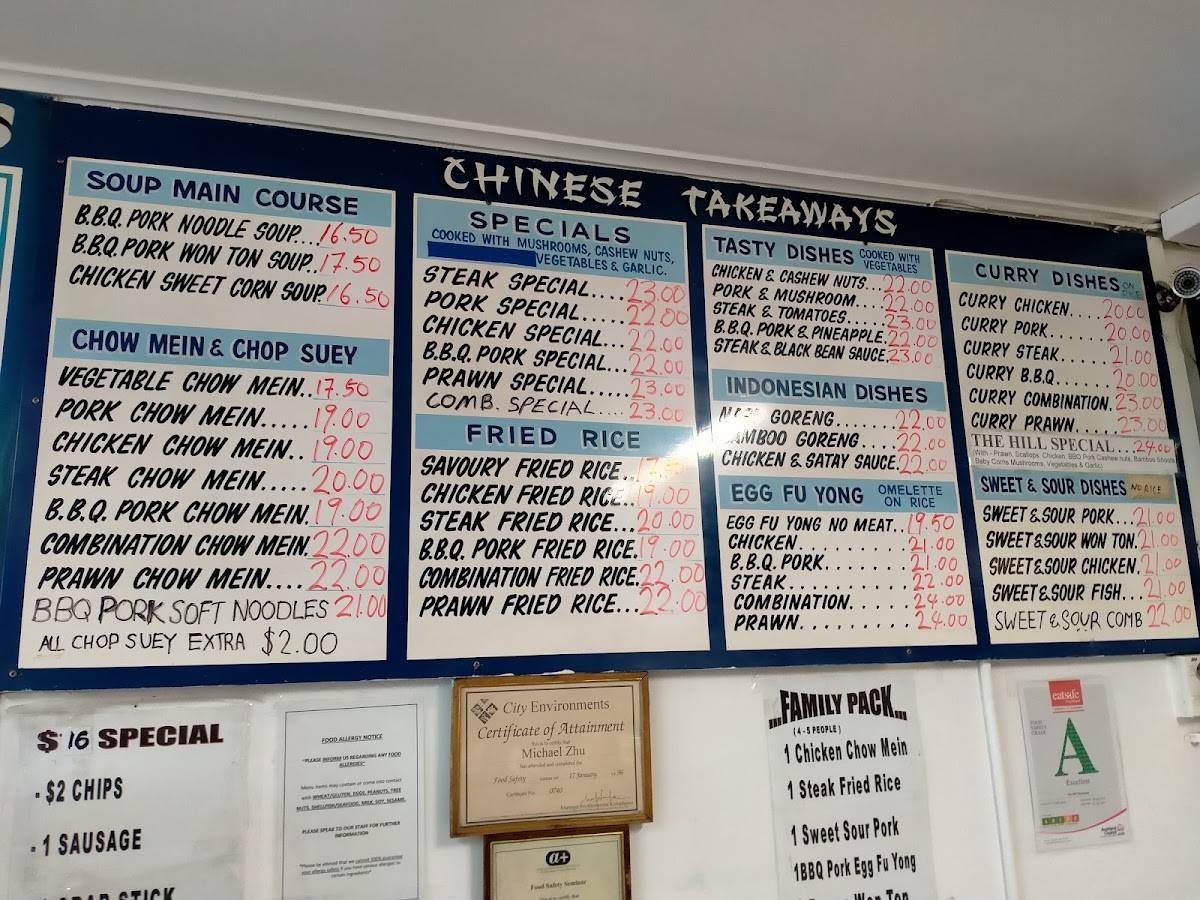 CHINESE TAKEAWAYS
SOUP MAIN COURSE
B.B.Q. PORK NOODLE SOUP....16.50
B.B.Q. PORK WON TON SOUP...17.50
CHICKEN SWEET CORN SOUP.16.50
CHOW MEIN & CHOP SUEY
VEGETABLE CHOW MEIN..17.50
PORK CHOW MEIN.....19.00
CHICKEN CHOW MEIN..19.00
STEAK CHOW MEIN.....20.00
B.B.Q. PORK CHOW MEIN.19.00
COMBINATION CHOW MEIN.22.00
PRAWN CHOW MEIN....22.00
BBQ PORK SOFT NOODLES 21.00
ALL CHOP SUEY EXTRA $2.00
SPECIALS
COOKED WITH MUSHROOMS, CASHEW NUTS,
VEGETABLES & GARLIC.
STEAK SPECIAL....23.00
PORK SPECIAL.....22.00
CHICKEN SPECIAL...22.00
B.B.Q. PORK SPECIAL...22.00
PRAWN SPECIAL....23.00
COMB. SPECIAL....23.00
FRIED RICE
SAVOURY FRIED RICE..
CHICKEN FRIED RICE..19.00
STEAK FRIED RICE...20.00
B.B.Q. PORK FRIED RICE.19.00
COMBINATION FRIED RICE.22.00
PRAWN FRIED RICE...22.00
TASTY DISHES COOKED WITH VEGETABLES
CHICKEN & CASHEW NUTS...22.00
PORK & MUSHROOM....22.00
STEAK & TOMATOES....23.00
B.B.Q. PORK & PINEAPPLE.22.00
STEAK & BLACK BEAN SAUCE.23.00
INDONESIAN DISHES
GORENG......22.00
BAMBOO GORENG....22.00
CHICKEN & SATAY SAUCE.22.00
EGG FU YONG OMELETTE ON RICE
EGG FU YONG NO MEAT..19.50
CHICKEN.........21.00
B.B.Q. PORK.......21.00
STEAK..........22.00
COMBINATION......24.00
PRAWN..........24.00
CURRY DISHES ON RICE
CURRY CHICKEN....20.00
CURRY PORK......20.00
CURRY STEAK.....21.00
CURRY B.B.Q.......20.00
CURRY COMBINATION.23.00
CURRY PRAWN.....23.00
THE HILL SPECIAL ...24.00
(With - Prawn, Scallops, Chicken, BBQ Pork Cashew nuts, Bamboo Shoots
Baby Corns Mushrooms, Vegetables & Garlic)
SWEET & SOUR DISHES NO RICE
SWEET & SOUR PORK...21.00
SWEET & SOUR WON TON.21.00
SWEET & SOUR CHICKEN.21.00
SWEET & SOUR FISH...21.00
SWEET & SOUR COMB 22.00
$ 16 SPECIAL
- $2 CHIPS
- 1 SAUSAGE
FOOD ALLERGY NOTICE
*PLEASE INFORM US REGARDING ANY FOOD
ALLERGIES*
Menu items may contain or come into contact
with WHEAT/GLUTEN, EGGS, PEANUTS, TREE
NUTS, SHELLFISH/SEAFOOD, MILK, SOY, SESAME.
PLEASE SPEAK TO OUR STAFF FOR FURTHER
INFORMATION
*Please be advised that we cannot 100% guarantee
your allergy safety if you have contact allergies to
certain ingredients*
City Environments
Certificate of Attainment
This is to certify that
Michael Zhu
has attended and completed the
Food Safety
17 January
Certificate No. 0740
a+
Food Safety Seminar
This is to certify that
...FAMILY PACK...
( 4 - 5 PEOPLE )
1 Chicken Chow Mein
1 Steak Fried Rice
1 Sweet Sour Pork
1BBQ Pork Egg Fu Yong
Won Ton
eatsafe
FOOD
SAFETY
GRADE
A
Excellent
Auckland Council